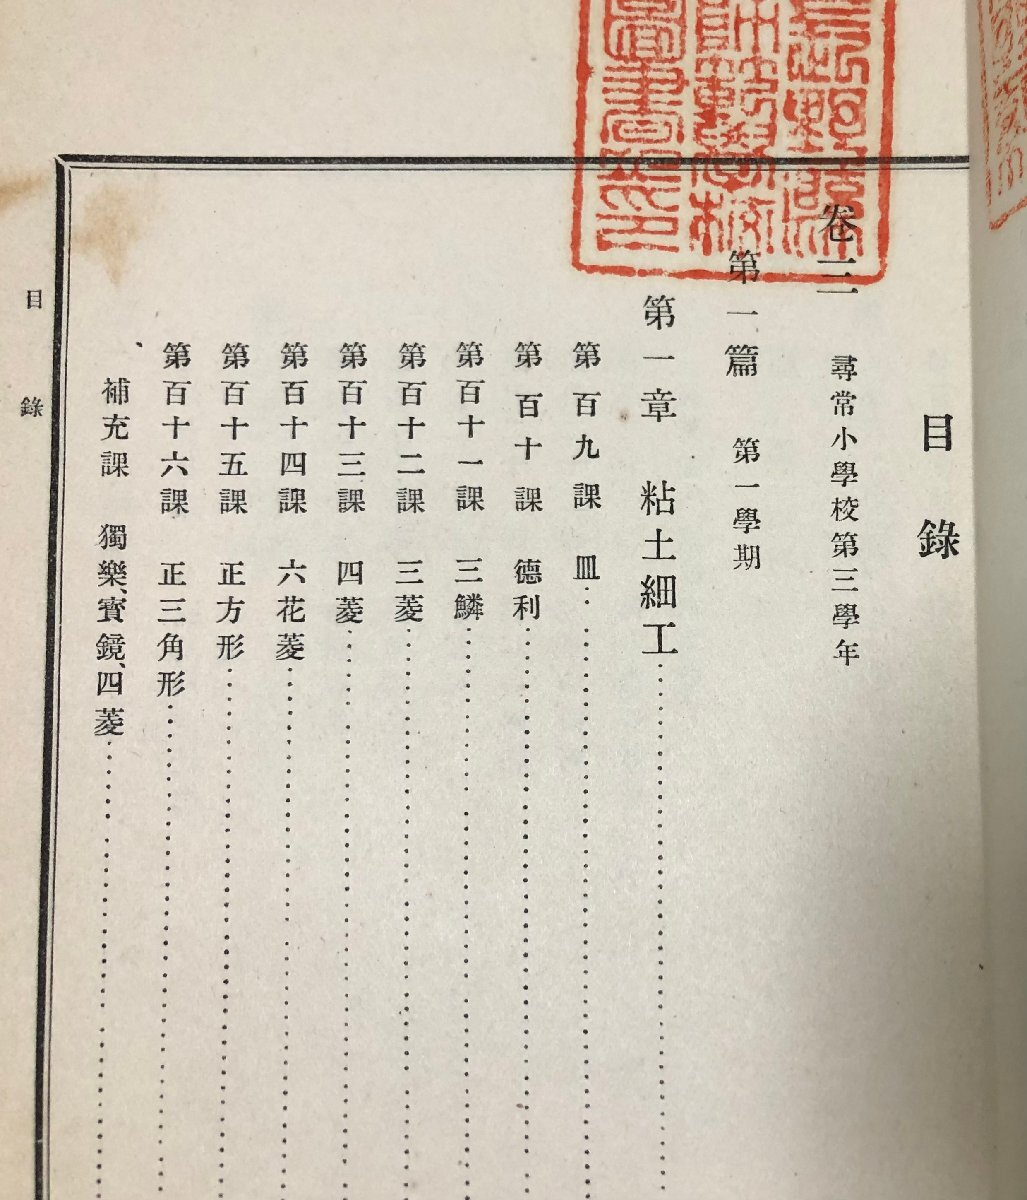 目錄
卷三 尋常小學校第三學年
第一篇 第一學期
第一章 粘土細工
第百九課 皿
第百十課 德利
第百十一課 三鱗
第百十二課 三菱
第百十三課 四菱
第百十四課 六花菱
第百十五課 正方形
第百十六課 正三角形
、補充課 獨樂、寶鏡、四菱
目錄
師範學校
圖書之印